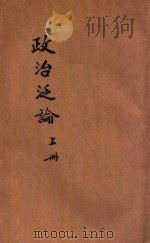 研狗
政治泛論 上冊
mtoou.info